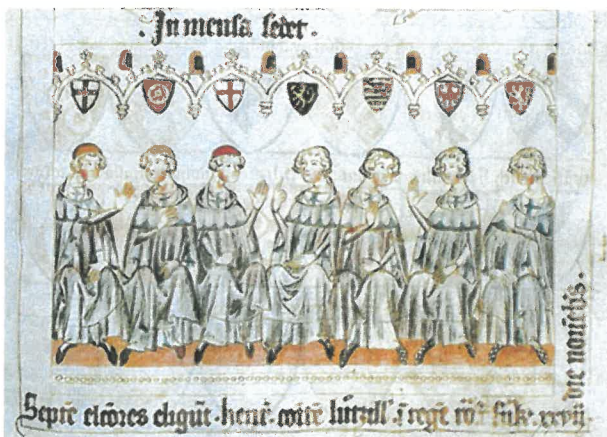 . Jn mensa sedet .
Septē elcōres eligūt · henr̄ · comitē lutzell' ī regē xxvij
die nouēbris .